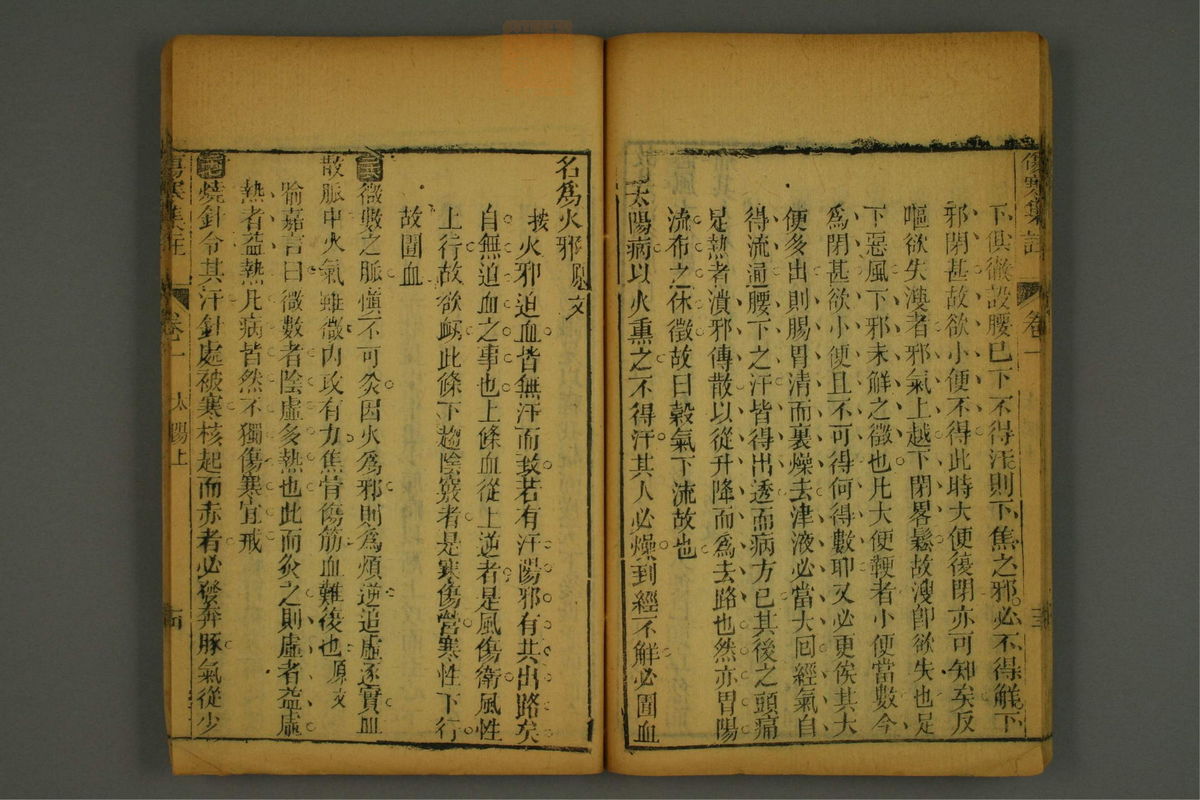 傷寒集註 卷一 十三
下俱徵設腰已下不得汗則下焦之邪必不得解下
邪閉甚故欲小便不得此時大便復閉亦可知矣反
嘔欲失溲者邪氣上越下閉畧鬆故溲卽欲失也足
下惡風下邪未解之徵也凡大便鞕者小便當數今
爲閉甚欲小便且不可得何得數耶又必更俟其大
便多出則腸胃清而裏燥去津液必當大回經氣自
得流通腰下之汗皆得出透而病方已其後之頭痛
足熱者潰邪傳散以從升降而爲去路也然亦胃陽
流布之休徵故曰穀氣下流故也
太陽病以火熏之不得汗其人必燥到經不解必圊血
名爲火邪 原文
按火邪迫血皆無汗而致若有汗陽邪有其出路矣
自無迫血之事也上條血從上逆者是風傷衛風性
上行故欲衂此條下趨陰竅者是寒傷營寒性下行
故圊血
微數之脈慎不可灸因火爲邪則爲煩逆追虛逐實血
散脈中火氣雖微內攻有力焦骨傷筋血難復也 原文
喻嘉言曰微數者陰虛多熱也此而灸之則虛者益虛
熱者益熱凡病皆然不獨傷寒宜戒
燒針令其汗針處被寒核起而赤者必發奔豚氣從少
傷寒集註 卷一 太陽上 十四